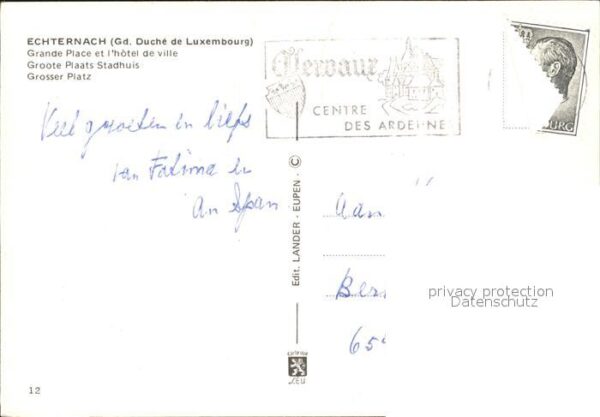 ECHTERNACH (Gd. Duché de Luxembourg)
Grande Place et l'hôtel de ville
Groote Plaats Stadhuis
Grosser Platz
Clervaux
CENTRE
DES ARDENNE
OURG
Veel groeten en liefs
van Fatima en
An Span
Aan
Ber
65
privacy protection
Datenschutz
Edit. LANDER - EUPEN - ©
LEU
12